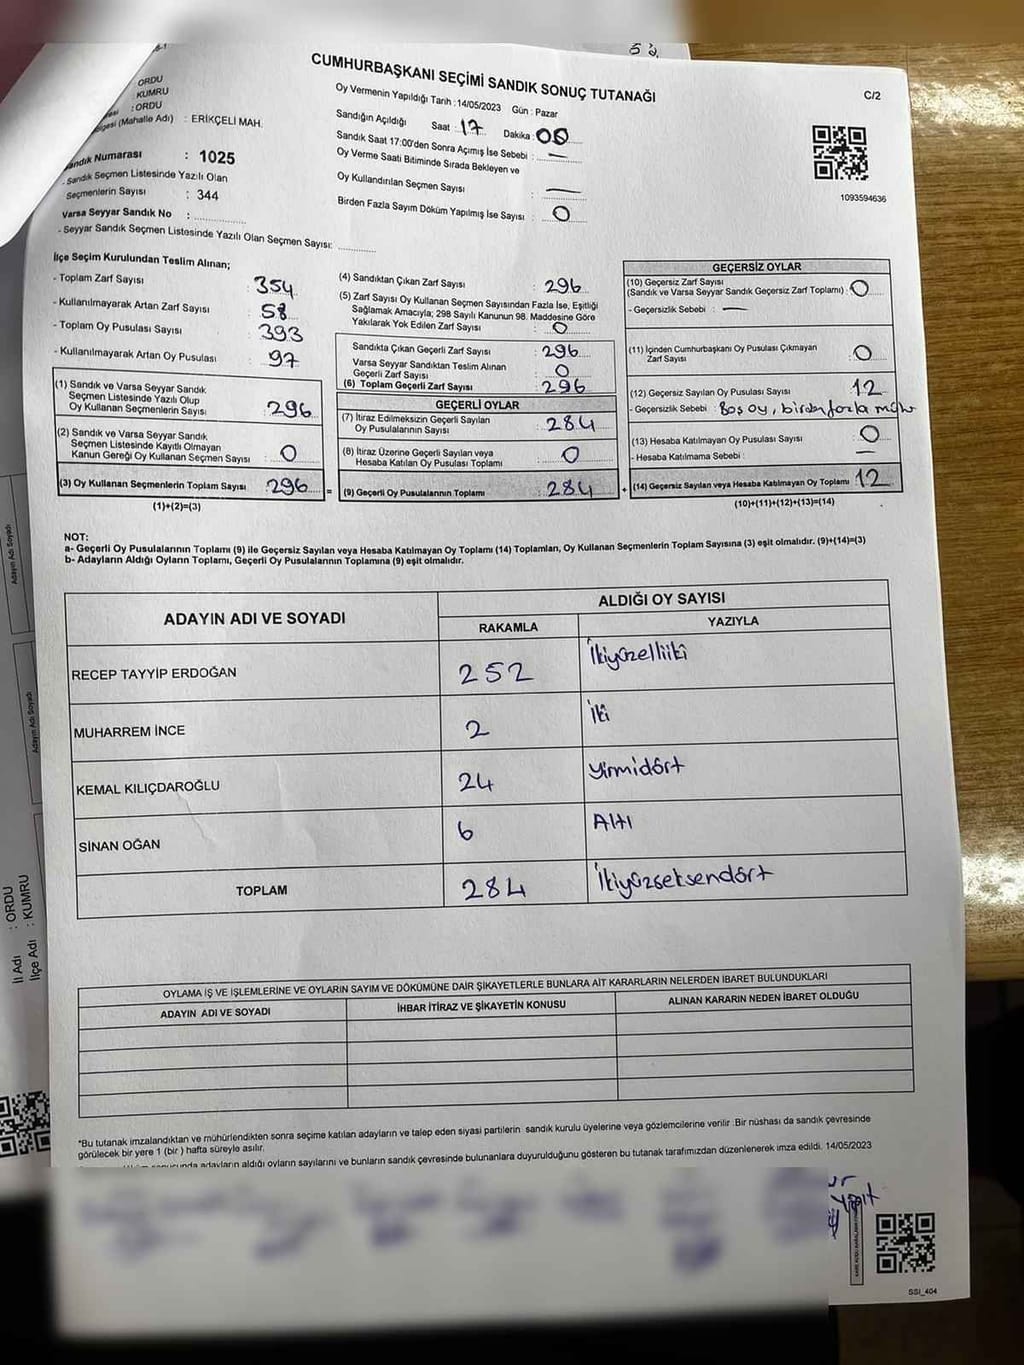 CUMHURBAŞKANI SEÇİMİ SANDIK SONUÇ TUTANAĞI
C/2
ORDU
: KUMRU
: ORDU
(Mahalle Adı) : ERİKÇELİ MAH.
Sandık Numarası : 1025
- Sandık Seçmen Listesinde Yazılı Olan
Seçmenlerin Sayısı : 344
Varsa Seyyar Sandık No :
- Seyyar Sandık Seçmen Listesinde Yazılı Olan Seçmen Sayısı:
Oy Vermenin Yapıldığı Tarih :14/05/2023 Gün : Pazar
Sandığın Açıldığı Saat 17 Dakika : 00
Sandık Saat 17:00'den Sonra Açımış İse Sebebi : —
Oy Verme Saati Bitiminde Sırada Bekleyen ve
Oy Kullandırılan Seçmen Sayısı : —
Birden Fazla Sayım Döküm Yapılmış İse Sayısı : 0
1093594636
İlçe Seçim Kurulundan Teslim Alınan;
- Toplam Zarf Sayısı : 354
- Kullanılmayarak Artan Zarf Sayısı : 58
- Toplam Oy Pusulası Sayısı : 393
- Kullanılmayarak Artan Oy Pusulası : 97
(1) Sandık ve Varsa Seyyar Sandık
Seçmen Listesinde Yazılı Olup
Oy Kullanan Seçmenlerin Sayısı : 296
(2) Sandık ve Varsa Seyyar Sandık
Seçmen Listesinde Kayıtlı Olmayan
Kanun Gereği Oy Kullanan Seçmen Sayısı : 0
(3) Oy Kullanan Seçmenlerin Toplam Sayısı : 296 =
(1)+(2)=(3)
(4) Sandıktan Çıkan Zarf Sayısı : 296
(5) Zarf Sayısı Oy Kullanan Seçmen Sayısından Fazla İse, Eşitliği
Sağlamak Amacıyla; 298 Sayılı Kanunun 98. Maddesine Göre
Yakılarak Yok Edilen Zarf Sayısı : 0
Sandıkta Çıkan Geçerli Zarf Sayısı : 296
Varsa Seyyar Sandıktan Teslim Alınan
Geçerli Zarf Sayısı : 0
(6) Toplam Geçerli Zarf Sayısı : 296
GEÇERLİ OYLAR
(7) İtiraz Edilmeksizin Geçerli Sayılan
Oy Pusulalarının Sayısı : 284
(8) İtiraz Üzerine Geçerli Sayılan veya
Hesaba Katılan Oy Pusulası Toplamı : 0
(9) Geçerli Oy Pusulalarının Toplamı : 284 +
GEÇERSİZ OYLAR
(10) Geçersiz Zarf Sayısı
(Sandık ve Varsa Seyyar Sandık Geçersiz Zarf Toplamı) : 0
- Geçersizlik Sebebi : —
(11) İçinden Cumhurbaşkanı Oy Pusulası Çıkmayan
Zarf Sayısı : 0
(12) Geçersiz Sayılan Oy Pusulası Sayısı : 12
- Geçersizlik Sebebi : Boş oy, birden fazla mühr
(13) Hesaba Katılmayan Oy Pusulası Sayısı : 0
- Hesaba Katılmama Sebebi : —
(14) Geçersiz Sayılan veya Hesaba Katılmayan Oy Toplamı : 12
(10)+(11)+(12)+(13)=(14)
NOT:
a- Geçerli Oy Pusulalarının Toplamı (9) ile Geçersiz Sayılan veya Hesaba Katılmayan Oy Toplamı (14) Toplamları, Oy Kullanan Seçmenlerin Toplam Sayısına (3) eşit olmalıdır. (9)+(14)=(3)
b- Adayların Aldığı Oyların Toplamı, Geçerli Oy Pusulalarının Toplamına (9) eşit olmalıdır.
ADAYIN ADI VE SOYADI ALDIĞI OY SAYISI
RAKAMLA YAZIYLA
RECEP TAYYİP ERDOĞAN 252 İkiyüzelliiki
MUHARREM İNCE 2 İki
KEMAL KILIÇDAROĞLU 24 Yirmidört
SİNAN OĞAN 6 Altı
TOPLAM 284 İkiyüzseksendört
OYLAMA İŞ VE İŞLEMLERİNE VE OYLARIN SAYIM VE DÖKÜMÜNE DAİR ŞİKAYETLERLE BUNLARA AİT KARARLARIN NELERDEN İBARET BULUNDUKLARI
ADAYIN ADI VE SOYADI İHBAR İTİRAZ VE ŞİKAYETİN KONUSU ALINAN KARARIN NEDEN İBARET OLDUĞU
*Bu tutanak imzalandıktan ve mühürlendikten sonra seçime katılan adayların ve talep eden siyasi partilerin sandık kurulu üyelerine veya gözlemcilerine verilir .Bir nüshası da sandık çevresinde
görülecek bir yere 1 (bir ) hafta süreyle asılır.
adayların aldığı oyların sayılarını ve bunların sandık çevresinde bulunanlara duyurulduğunu gösteren bu tutanak tarafımızdan düzenlenerek imza edildi. 14/05/2023
SSI_404
Adayın Adı Soyadı
Adayın Adı Soyadı
İl Adı : ORDU
İlçe Adı : KUMRU